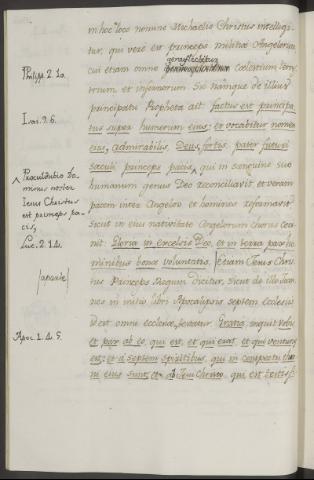 in hoc loco nomine Michaelis Christus intelligi-
tur, qui verè est princeps militiæ Angelorum,
cui etiam omne genu flectetur cœlestium, terres-
trium et infernorum. Sic namque de illius
principatu Propheta ait: factus est principa-
tus super humerum eius, et vocabitur nomen
eius, admirabilis, Deus, fortis, pater futuri
sæculi princeps pacis, qui in sanguine suo
humanum genus Deo reconciliavit, et veram
pacem inter Angelos et homines reformavit.
Sicut in eius nativitate Angelorum chorus ceci-
nit: Gloria in Excelsis Deo, et in terra pax ho-
minibus bonæ voluntatis. Etiam Iesus Chris-
tus Princeps Regum dicitur, sicut de illo Joan-
nes in initio libri Apocalipsis septem ecclesiis
id est omni ecclesiæ, Gratia, inquit vobis
et pax ab eo, qui est, et qui erat, et qui venturus
est: et à septem spiritibus, qui in conspectu thro-
ni eius sunt, et ab Iesu Christo, qui est testis
Philipp. 2. 10.
Isai. 9. 6.
dominus noster
Iesus Christus
est princeps pa-
cis,
Luc. 2. 14.
Apoc. 1. 4. 5.